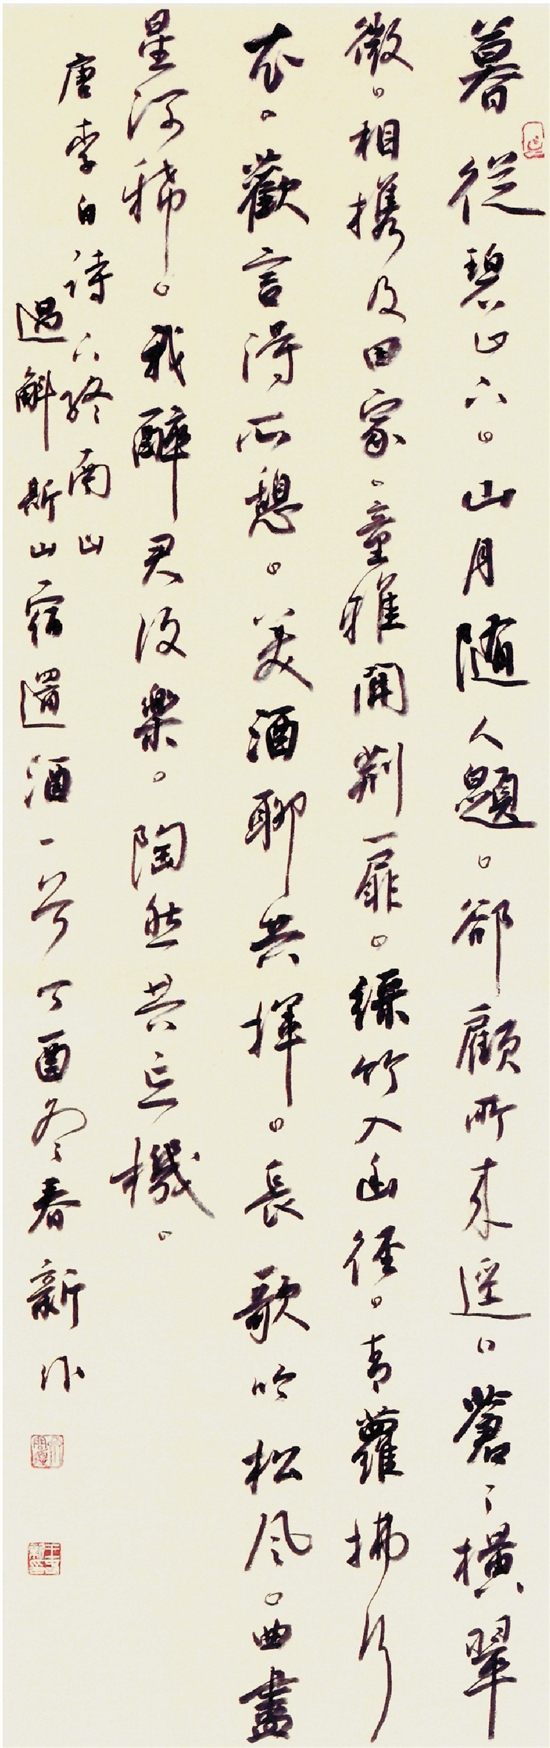 暮從碧山下。山月随人題。郤顧所来逕。蒼〻橫翠
微。相攜及田家〻童稚開荆扉。綠竹入幽徑。青蘿拂行
衣。歡言得所憩。美酒聊共揮。長歌吟松風。曲盡
星河稀。我醉君復樂。陶然共忘機。
唐李白詩下終南山
過斛斯山宿還酒一首丁酉冬春新作